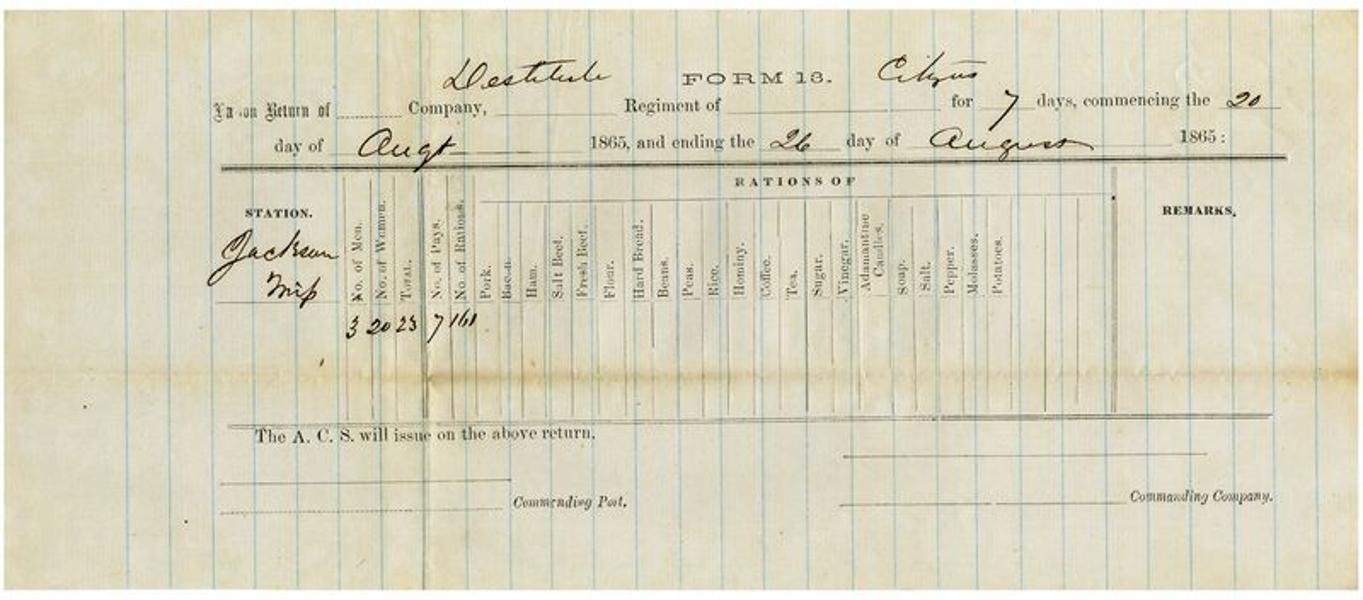 Destitute FORM 13. Citzns
Ration Return of Company, Regiment of for 7 days, commencing the 20
day of Augt 1865, and ending the 26 day of August 1865:
RATIONS OF
STATION. No. of Men. No. of Women. TOTAL. No. of Days. No. of Rations. Pork. Bacon. Ham. Salt Beef. Fresh Beef. Flour. Hard Bread. Beans. Peas. Rice. Hominy. Coffee. Tea. Sugar. Vinegar. Adamantine Candles. Soap. Salt. Pepper. Molasses. Potatoes. REMARKS.
Jackson
Miss
3 20 23 7 161
The A. C. S. will issue on the above return.
Commending Post. Commanding Company.